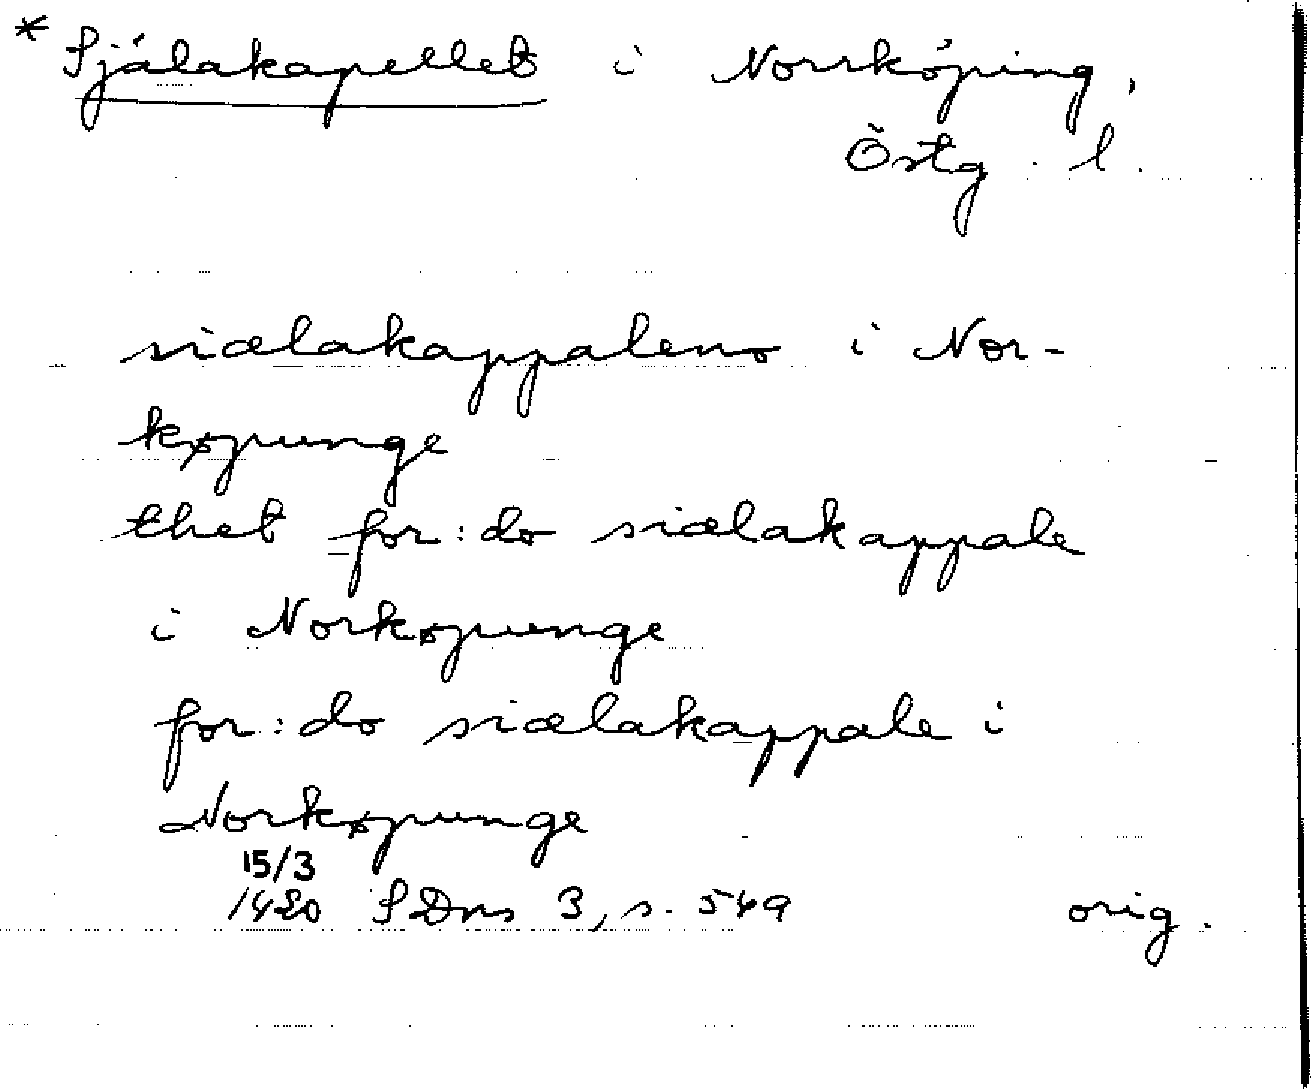 * Själakapellet i Norrköping,
Östg. l.
siælakappaleno i Nor-
køpunge
thet for:do siælakappale
i Norkøpunge
for:do siælakappale i
Norkøpunge
15/3
1420 SDns 3, s. 549 orig.